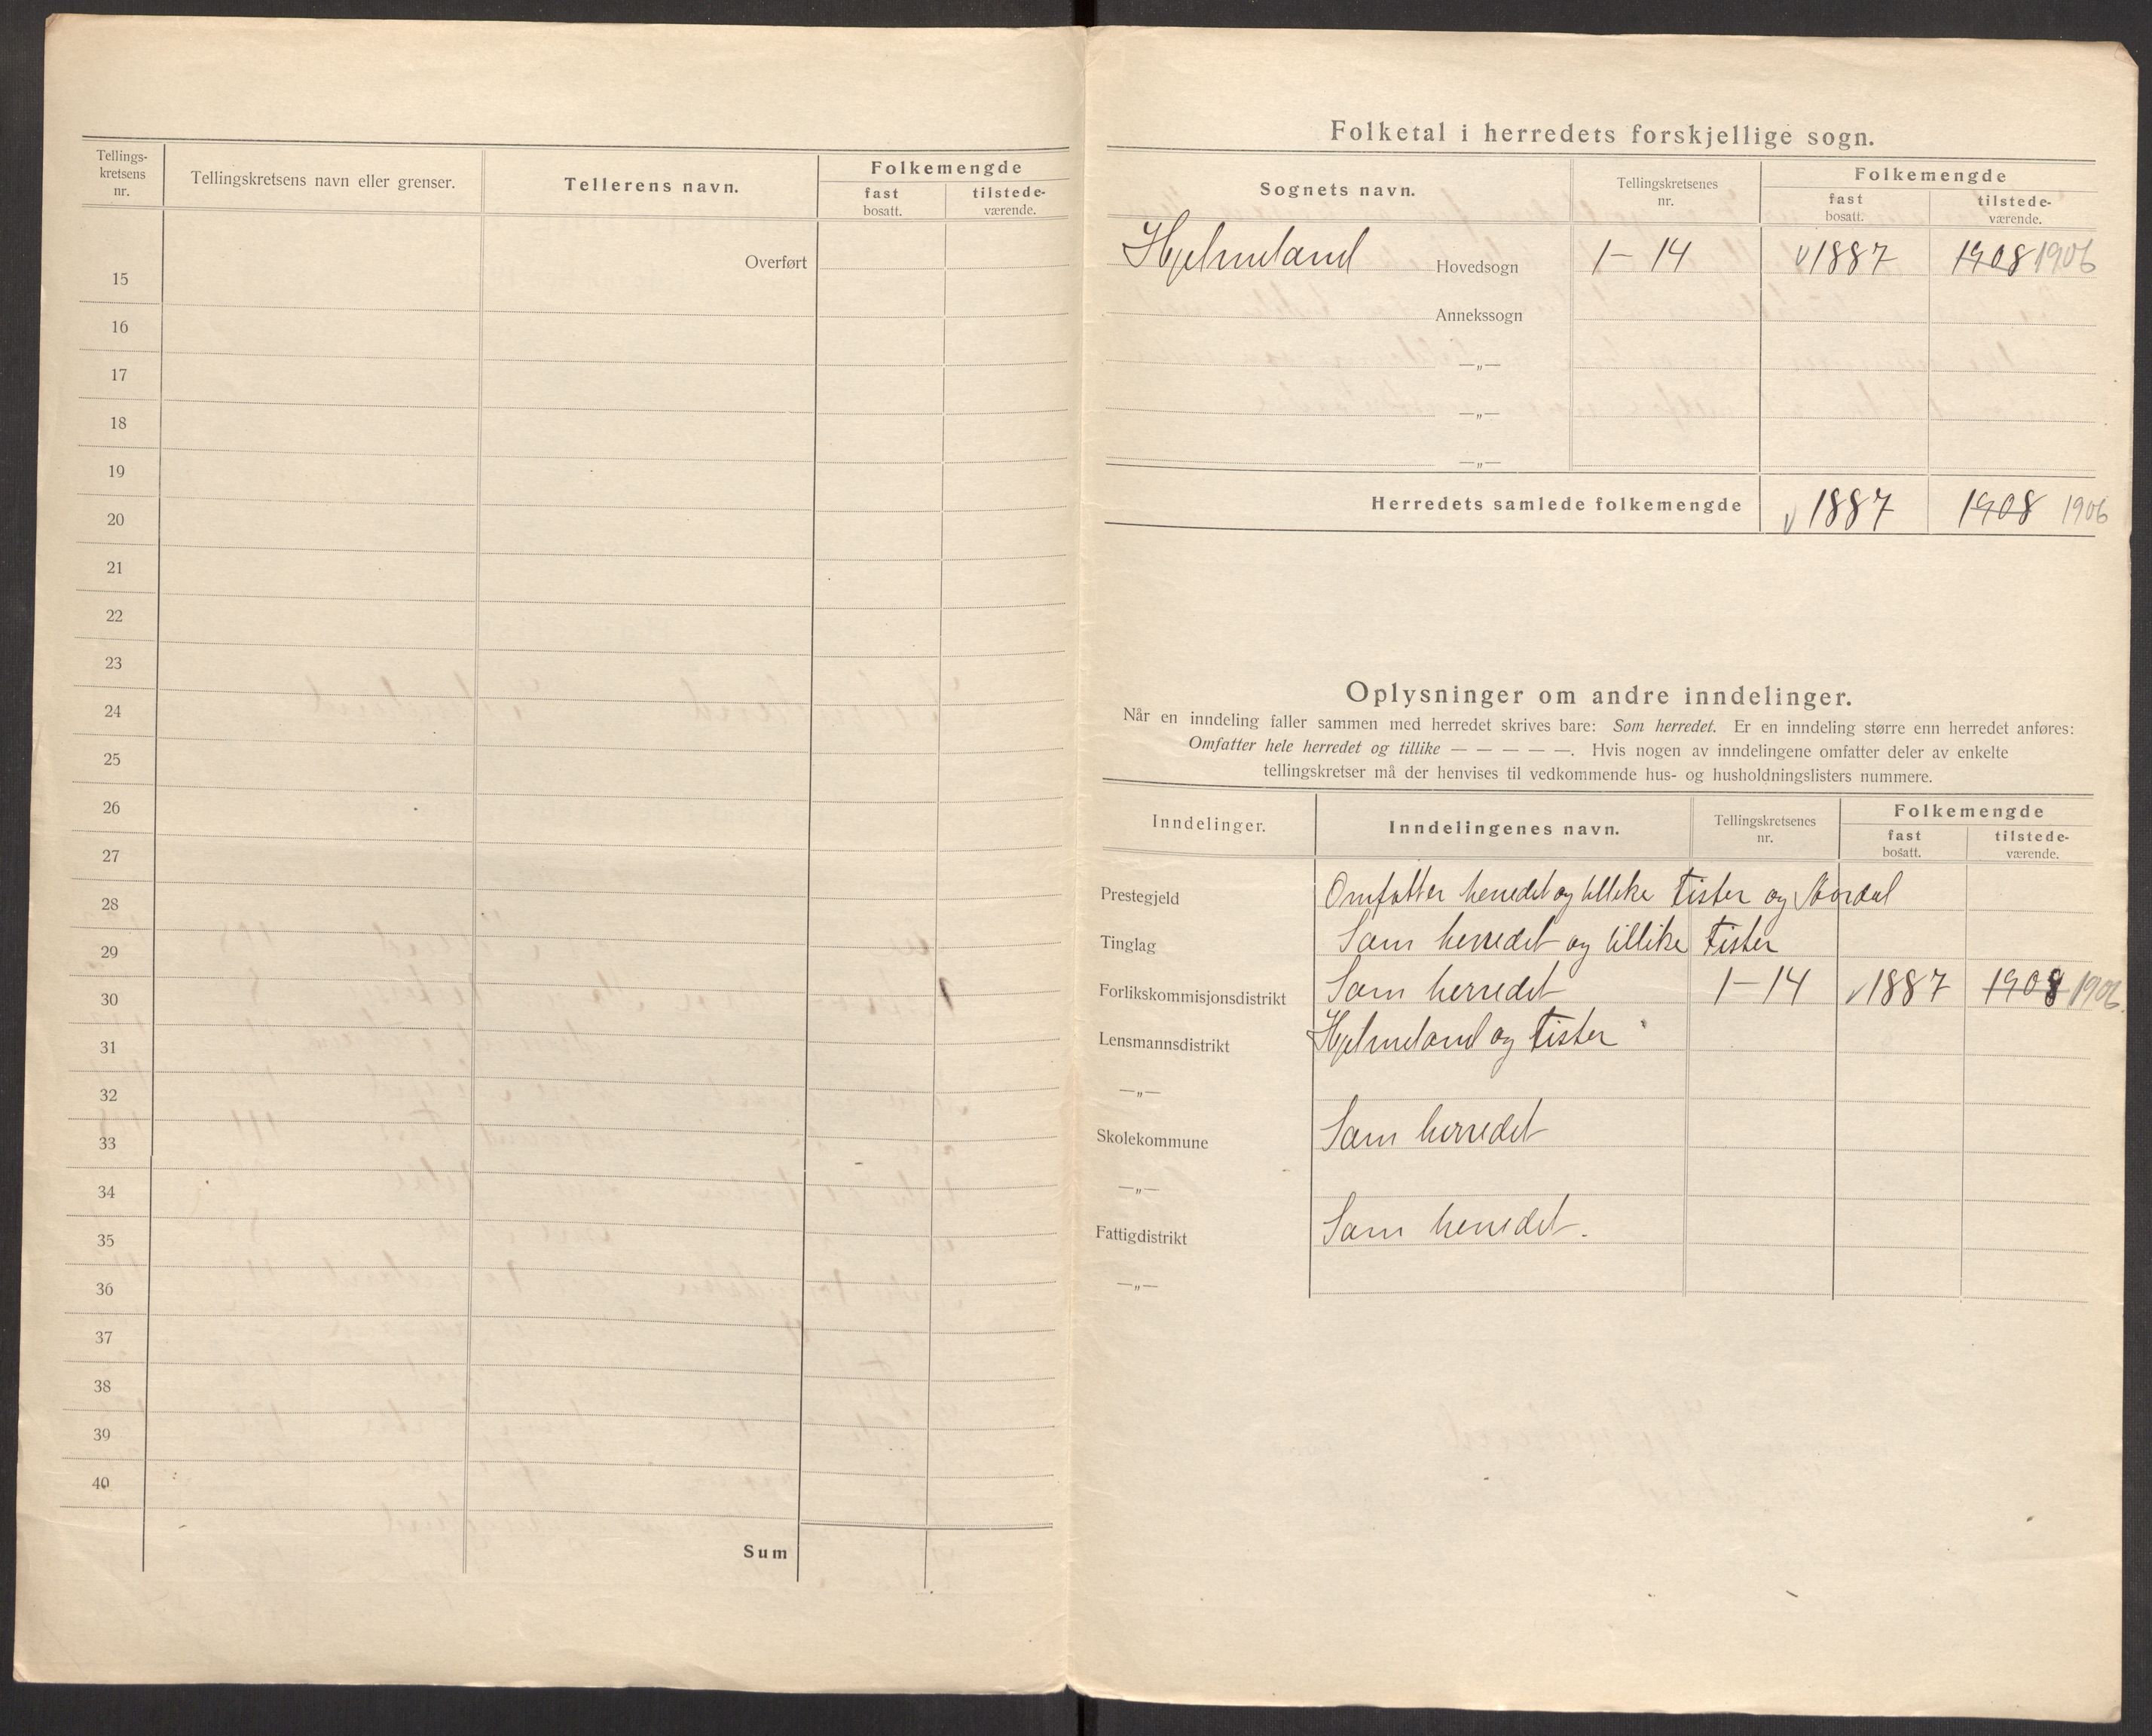 Tellings-
kretsens
nr.
Tellingskretsens navn eller grenser.
Tellerens navn.
Folkemengde
fast
bosatt.
tilstede-
værende.
Overført
15
16
17
18
19
20
21
22
23
24
25
26
27
28
29
30
31
32
33
34
35
36
37
38
39
40
Sum
Folketal i herredets forskjellige sogn.
Sognets navn.
Tellingskretsenes
nr.
Folkemengde
fast
bosatt.
tilstede-
værende.
Hjelmeland Hovedsogn 1-14 v 1887 1908 1906
Annekssogn
—„—
—„—
—„—
Herredets samlede folkemengde v 1887 1908 1906
Oplysninger om andre inndelinger.
Når en inndeling faller sammen med herredet skrives bare: Som herredet. Er en inndeling større enn herredet anføres:
Omfatter hele herredet og tillike — — — — —. Hvis nogen av inndelingene omfatter deler av enkelte
tellingskretser må der henvises til vedkommende hus- og husholdningslisters nummere.
Inndelinger.
Inndelingenes navn.
Tellingskretsenes
nr.
Folkemengde
fast
bosatt.
tilstede-
værende.
Prestegjeld Omfatter herredet og tillike Fister og
Tinglag Som herredet og tillike Fister
Forlikskommisjonsdistrikt Som herredet 1-14 v 1887 1908 1906
Lensmannsdistrikt Hjelmeland og Fister
—„—
Skolekommune Som herredet
—„—
Fattigdistrikt Som herredet.
—„—